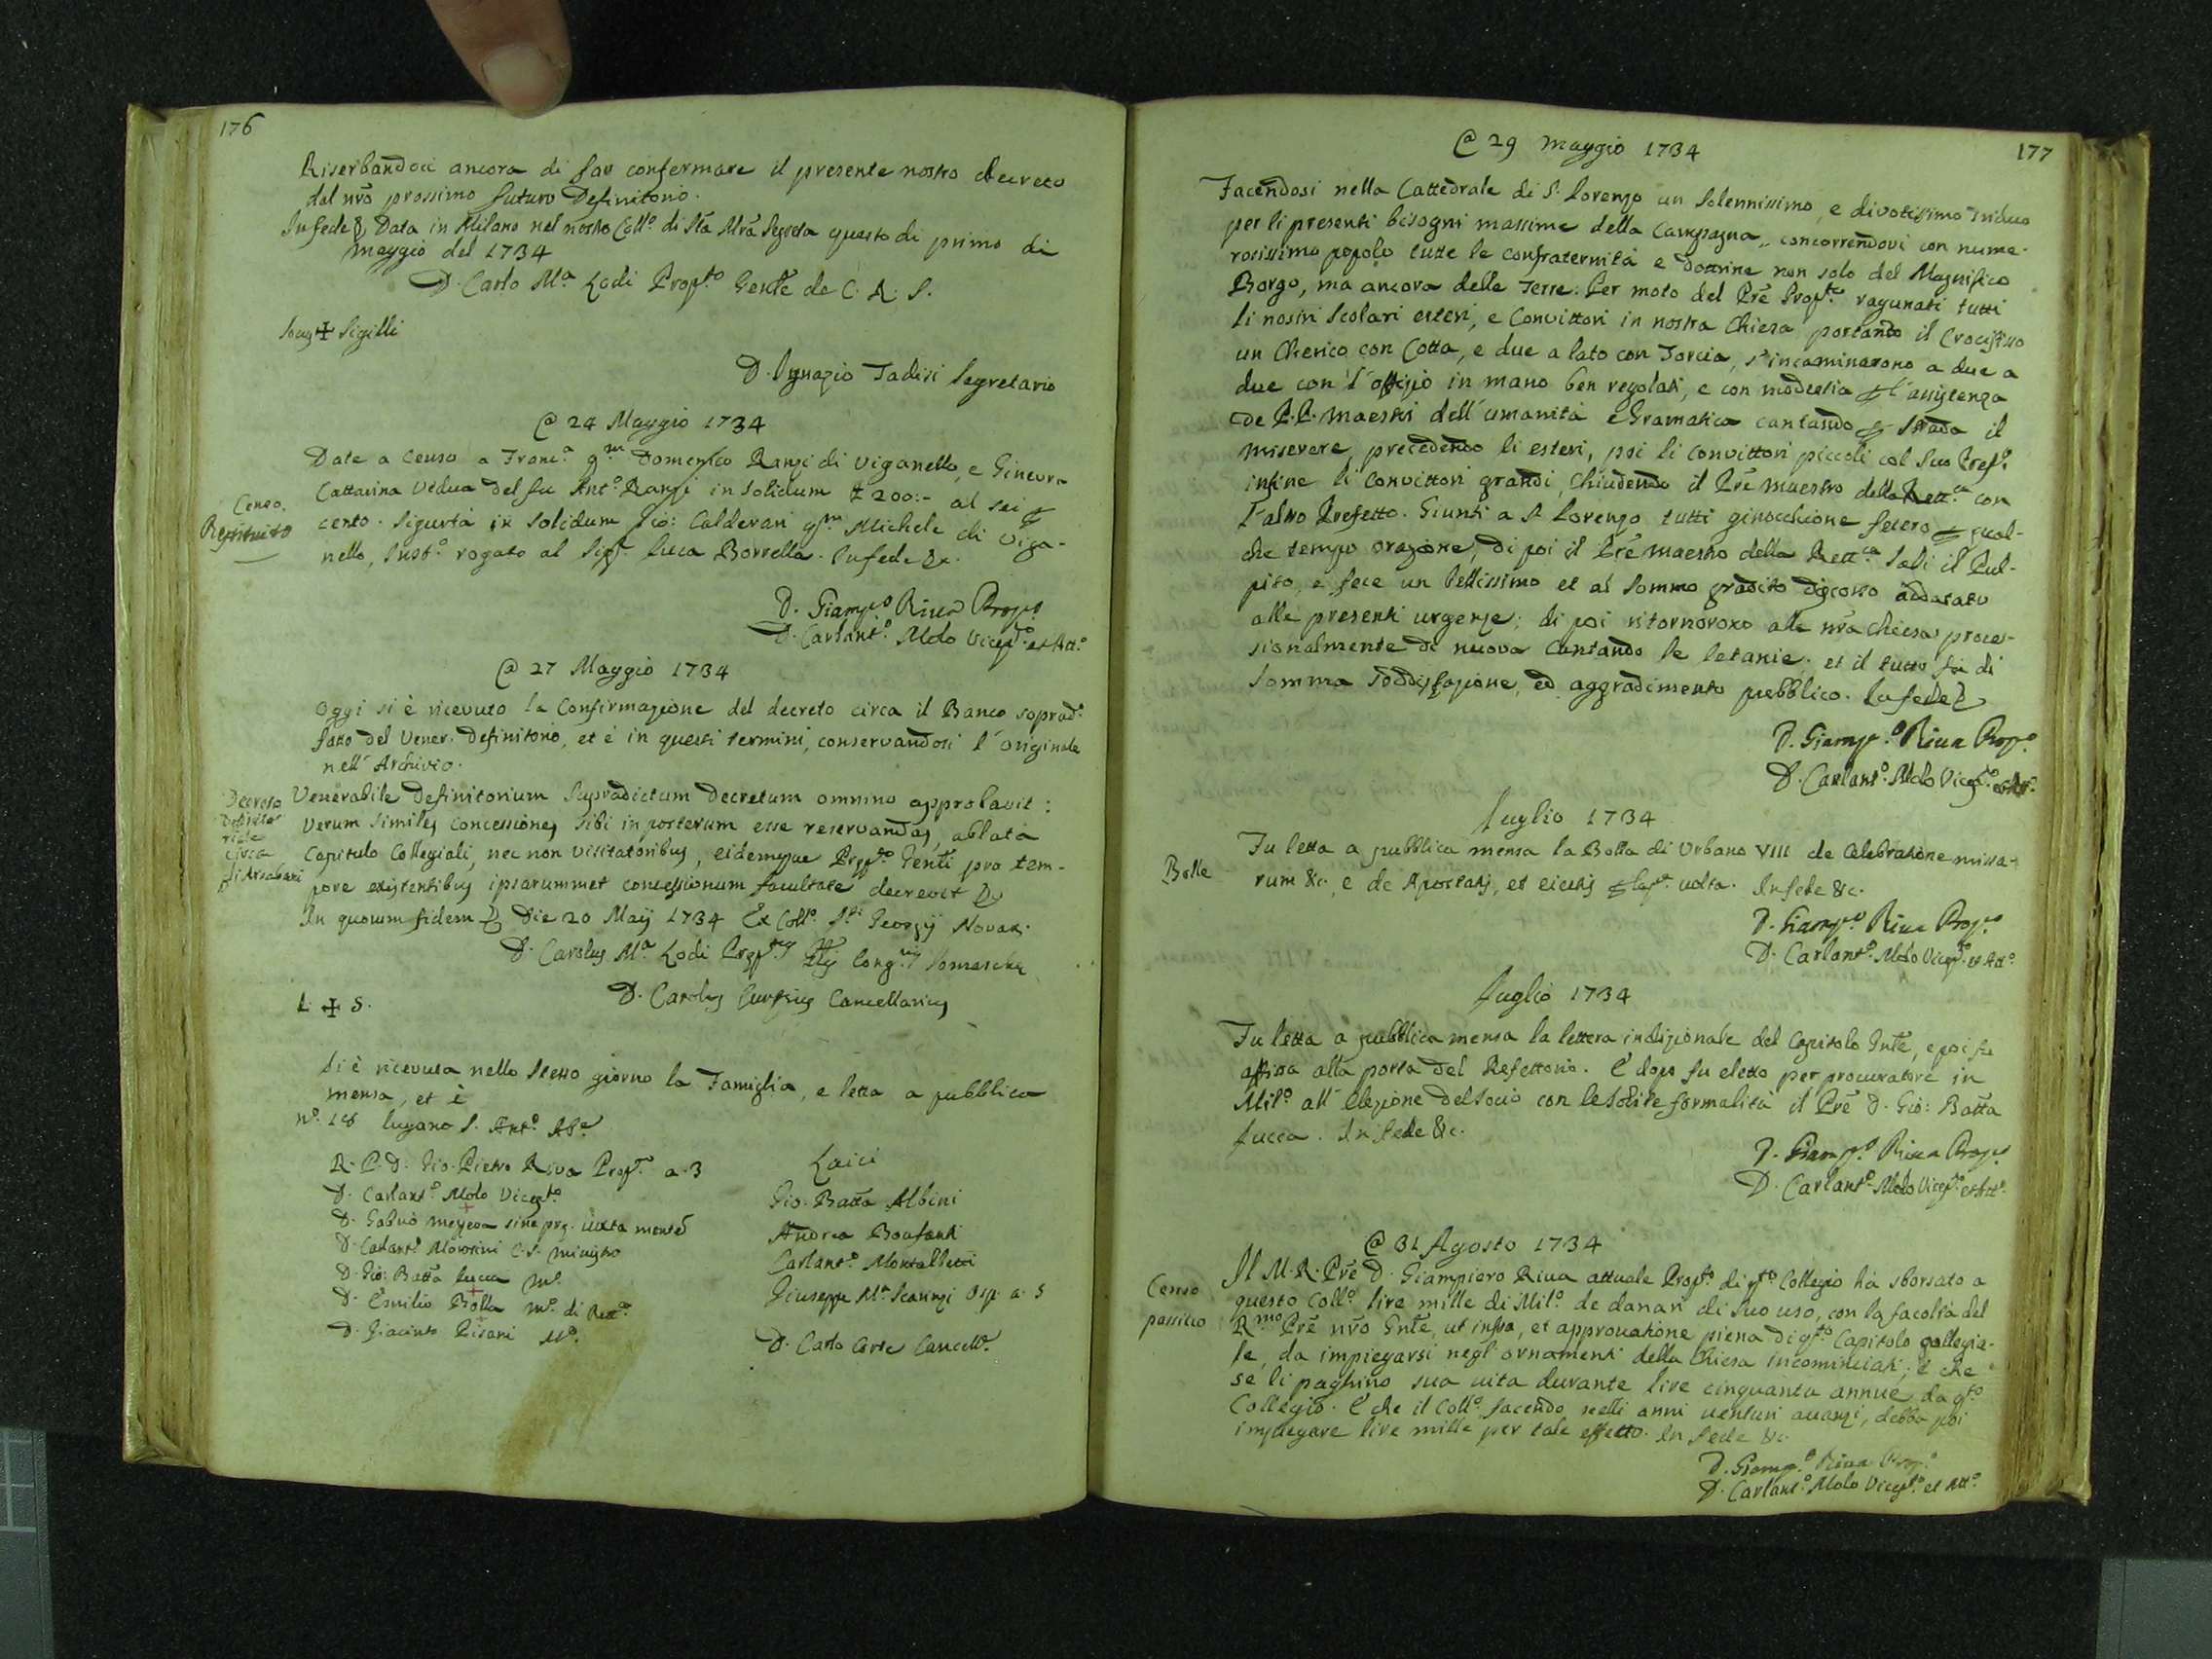 176
Riserbandoci ancora di far confermare il presente nostro decreto
dal nro prossimo futuro Definitorio.
In fede & Data in Milano nel nostro Coll.o di Sta Mra Segreta questo di primo di
maggio del 1734
D. Carlo M.a Lodi Prop.to Genle de C. R. S.
Locus ✠ Sigilli
D. Ignazio Tadisi Segretario
@ 24 Maggio 1734
Censo.
Restituito
Date a Censo a Franc.a q.m Domenico Ranzi di Viganello, e Ginevra
Cattarina Vedua del fu Ant.o Ranzi in solidum £ 200:- al sei p
cento. Sigurtà in solidum Gio: Calderari q.m Michele di Viga-
nello, Inst.o rogato al Sig.r Luca Borrella. In fede &c.
D. Giamp.o Riva Prop.o
D. Carlant.o Molo Vicep.to et Att.o
@ 27 Maggio 1734
Oggi si è ricevuto la Confirmazione del decreto circa il Banco soprad.o
fatto del Vener. Definitorio, et è in questi termini, conservandosi l'originale
nell'Archivio.
Decreto
Definito-
riale
circa
Venerabile Definitorium Supradictum Decretum omnino approbavit:
Verum similes concessiones sibi in posterum esse reservandas, ablata
Capitulo Collegiali, nec non Visitatoribus, eidemque Prep.to Genli pro tem-
pore existentibus ipsarummet concessionum facultate decrevit &
In quorum fidem & Die 20 Maij 1734 Ex Coll.o S.ti Georgij Novar.
D. Carolus M.a Lodi Prep.tus Glis Cong.nis Somaschę
L. ✠ S.
D. Carolus Cancellarius
Si è ricevuta nello stesso giorno la Famiglia, e letta a pubblica
mensa, et è
n.o 18 Lugano S. Ant.o Ab.e
R. P. D. Gio. Pietro Riva Prop.to a. 3
D. Carlant.o Molo Vicep.to
D. Gabrio sine prę. iuxta mentẽ
D. Carlant.o Morosini C. S. ministro
D. Gio: Batta Lucca M.o
D. Emilio Bolla M.o di Rett.a
D. Giacinto Pisani M.o
Laici
Gio. Batta Albini
Andrea Bonfanti
Carlant.o Montalbetti
Giuseppe M.a Scaringi Osp. a. 5
D. Carlo Cancell.o
177
@ 29 Maggio 1734
Facendosi nella Cattedrale di S. Lorenzo un Solennissimo, e divotissimo Triduo
per li presenti bisogni massime della Campagna, concorrendovi con nume-
rosissimo popolo tutte le confraternità e dottrine non solo del Magnifico
Borgo, ma ancora delle Terre. Per moto del Pre Prop.to ragunati tutti
li nostri Scolari esteri, e Convittori in nostra Chiesa portando il Crocifisso
un Cherico con Cotta, e due a lato con Torcia, s'incaminarono a due a
due con l'offizio in mano ben regolati, e con modestia p l'assistenza
de P.P. Maestri dell'umanità e Gramatica cantando p strada il
miserere, precedendo li esteri, poi li convittori piccoli col suo Pref.o
infine li convittori grandi, chiudendo il Pre maestro della Rett.ca con
l'altro Prefetto. Giunti a S. Lorenzo tutti ginocchione fecero p qual-
che tempo orazione, di poi il Pre maestro della Rett.ca salì il Pul-
pito, e fece un bellissimo et al sommo gradito discorso addatato
alle presenti urgenze; di poi ritornorono alla nra Chiesa proces-
sionalmente di nuovo Cantando le letanie. et il tutto fu di
somma soddisfazione, ed aggradimento pubblico. In fede &
D. Giamp.o Riva Prop.o
D. Carlant.o Molo Vicep.to et Att.o
Luglio 1734
Bolle
Fu letta a pubblica mensa la Bolla di Urbano VIII de Celebratione missa-
rum &c., e de Apostatis, et eiectis p la p.a volta. In fede &c.
D. Giamp.o Riva Prop.o
D. Carlant.o Molo Vicep.to et Att.o
Luglio 1734
Fu letta a pubblica mensa la lettera indizionale del Capitolo Gnle, e poi fu
affissa alla porta del Refettorio. E dopo fu eletto per procuratore in
Mil.o all'Elezione del Socio con le solite formalità il Pre D. Gio: Batta
Lucca. In fede &c.
D. Giamp.o Riva Prop.o
D. Carlant.o Molo Vicep.to et Att.o
@ 31 Agosto 1734
Censo
passivo
Il M. R. Pre D. Giampiero Riva attuale Prop.to di q.to Collegio hà sborsato a
questo Coll.o lire mille di Mil.o de danari di suo uso, con la facoltà del
R.mo Pre nro Gnle, ut infra, et approvatione piena di q.to Capitolo collegia-
le, da impiegarsi negl'ornamenti della Chiesa incominciati; e che
se li paghino sua vita durante lire cinquanta annue da q.to
Collegio. E che il Coll.o facendo nelli anni venturi avanzi, debba poi
impiegare lire mille per tale effetto. In fede &c.
D. Giamp.o Riva Prop.o
D. Carlant.o Molo Vicep.to et Att.o